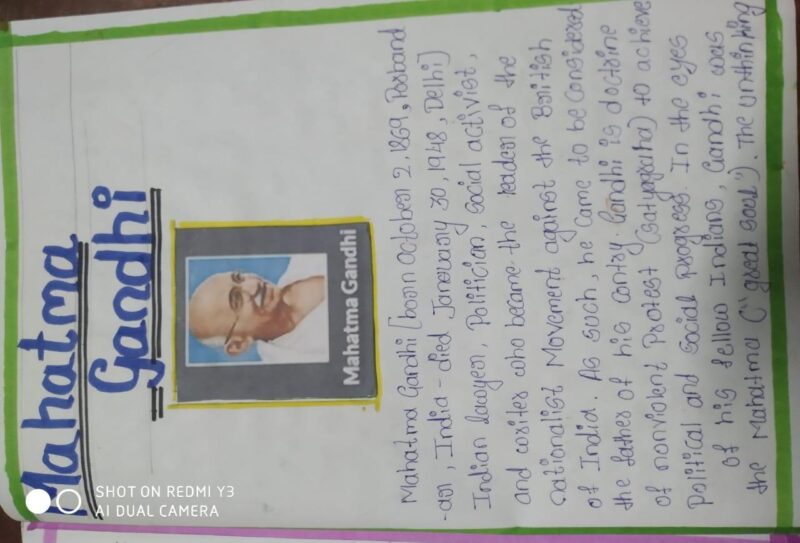 Mahatma
Gandhi
Mahatma Gandhi
Mahatma Gandhi [born october 2, 1869, Porband
-aer, India - died Janeuary 30, 1948, Delhi]
Indian lawyer, Politician, social activist,
and writer who became the leader of the
nationalist Movement against the British
of India. As such, he came to be considered
the father of his contry. Gandhi is doctrine
of nonviolent Protest (satyagraha) to achieve
Political and social progress. In the eyes
of his fellow Indians, Gandhi was
the Mahatma ("great soul"). The unthinking
SHOT ON REDMI Y3
AI DUAL CAMERA